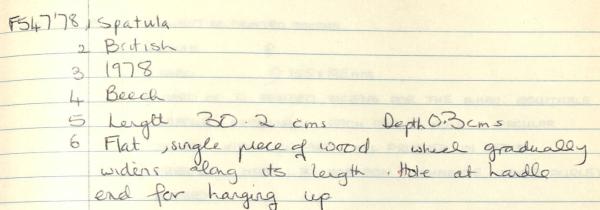 F547'78, Spatula
2 British
3 1978
4 Beech
5 Length 30.2 cms Depth 0.3cms
6 Flat, single piece of wood which gradually
widens along its length. Hole at handle
end for hanging up